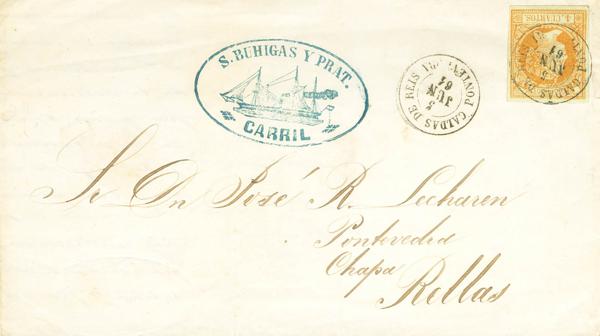 S. BUHIGAS Y PRAT.
CARRIL
CALDAS DE REIS PONTEVEDRA
5
JUN
61
4 CUARTOS
5
JUN
61
Sr Dn José R. Lecharen
Pontevedra
Chapa
Rellas